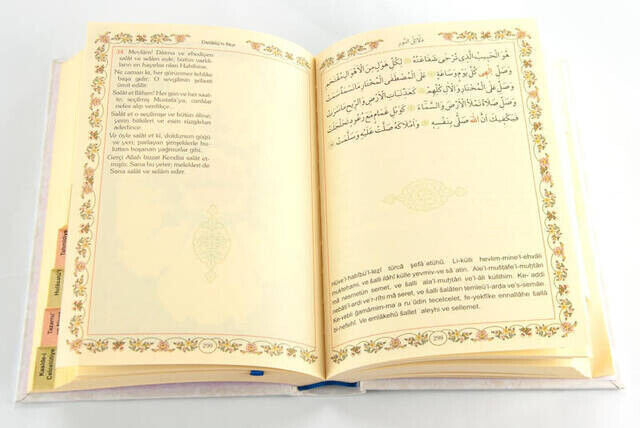 Delâilü'n-Nur
24. Mevlâm! Dâima ve ebediyen
salât ve selâm eder, bütün varlık-
ların en hayırlısı olan Habibine.
Ne zaman ki, her görünmez tehlike
başa gelir; O sevgilinin şefaati
ümit edilir.
Salât et İlâhım! Her gün ve her saat-
te, seçilmiş Mustafa'ya, canlılar
nefes alıp verdikçe...
Salât et o seçilmişe ve bütün âline,
yerin bitkileri ve esen rüzgârlar
adedince
Ve öyle salât et ki, doldursun göğü
ve yeri; parlayan şimşeklerle bu-
luttan boşanan yağmurlar gibi.
Gerçi Allah bizzat Kendisi salât et-
miştir, Sana bu yeter; melekleri de
Sana salât ve selâm eder.
298
Tahmidiye
Hulâsatü'l
Kaside-i
Celcelûtiye
دَلَائِلُ النُّورِ
هُوَ الْحَبِيبُ الَّذِي تُرْجَى شَفَاعَتُهُ لِكُلِّ هَوْلٍ مِنَ الْأَهْوَالِ مُقْتَحِمِ
وَصَلِّ إِلٰهِي كُلَّ يَوْمٍ وَسَاعَةٍ عَلَى الْمُصْطَفَى الْمُخْتَارِ مَا نَسَمَةٌ سَمَتْ
وَصَلِّ عَلَى الْمُخْتَارِ وَالْآلِ كُلِّهِمْ كَعَدِّ نَبَاتِ الْأَرْضِ وَالرِّيحِ مَا سَرَتْ
وَصَلِّ صَلَاةً تَمْلَأُ الْأَرْضَ وَالسَّمَاءَ كَوَبْلِ غَمَامٍ مَعَ رُعُودٍ تَجَلْجَلَتْ
فَيَكْفِيكَ أَنَّ اللّٰهَ صَلَّى بِنَفْسِهِ وَأَمْلَاكَهُ صَلَّتْ عَلَيْهِ وَسَلَّمَتْ
Hüve'l-habîbü'l-lezî türcâ şefâ'atühû. Li-külli hevlim-mine'l-ehvâli
muktehami, ve ṣalli ilâhî külle yevmiv-ve sâ'atin. Ale'l-muṣṭafe'l-muḫtâri
mâ nesmetün semet, ve ṣalli ale'l-muḫtâri ve'l-âli küllihim. Ke-'addi
nebâti'l-arḍi ve'r-rîḥi mâ seret, ve ṣalli ṣalâten temleü'l-arḍa ve's-semâe.
Ke-vebli ğamâmim-ma'a ru'ûdin tecelcelet, fe-yekfîke ennallâhe ṣallâ
bi-nefsihî. Ve emlâkehû ṣallet 'aleyhi ve sellemet.
299